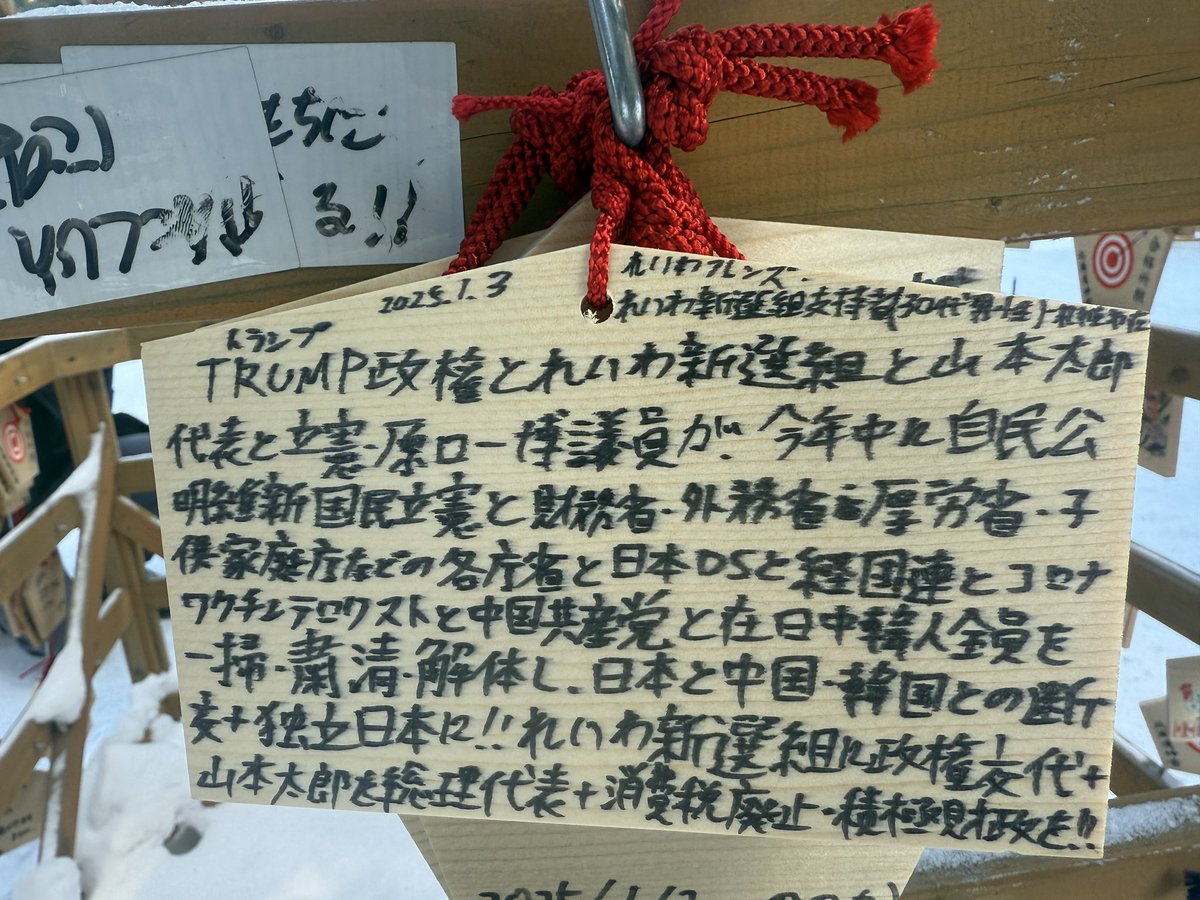 もちこ
る!!
2025.1.3
れいわフレンズ
れいわ新選組支持者(30代男性)
トランプ
TRUMP政権とれいわ新選組と山本太郎
代表と立憲・原口一博議員が、今年中に自民公
明維新国民立憲と財務省・外務省・厚労省・子
供家庭庁などの各庁省と日本DSと経団連とコロナ
ワクチンテロリストと中国共産党と在日中韓人全員を
一掃・粛清・解体し、日本と中国・韓国との断
交+独立日本に!!れいわ新選組に政権交代+
山本太郎を総理代表+消費税廃止・積極財政を!!